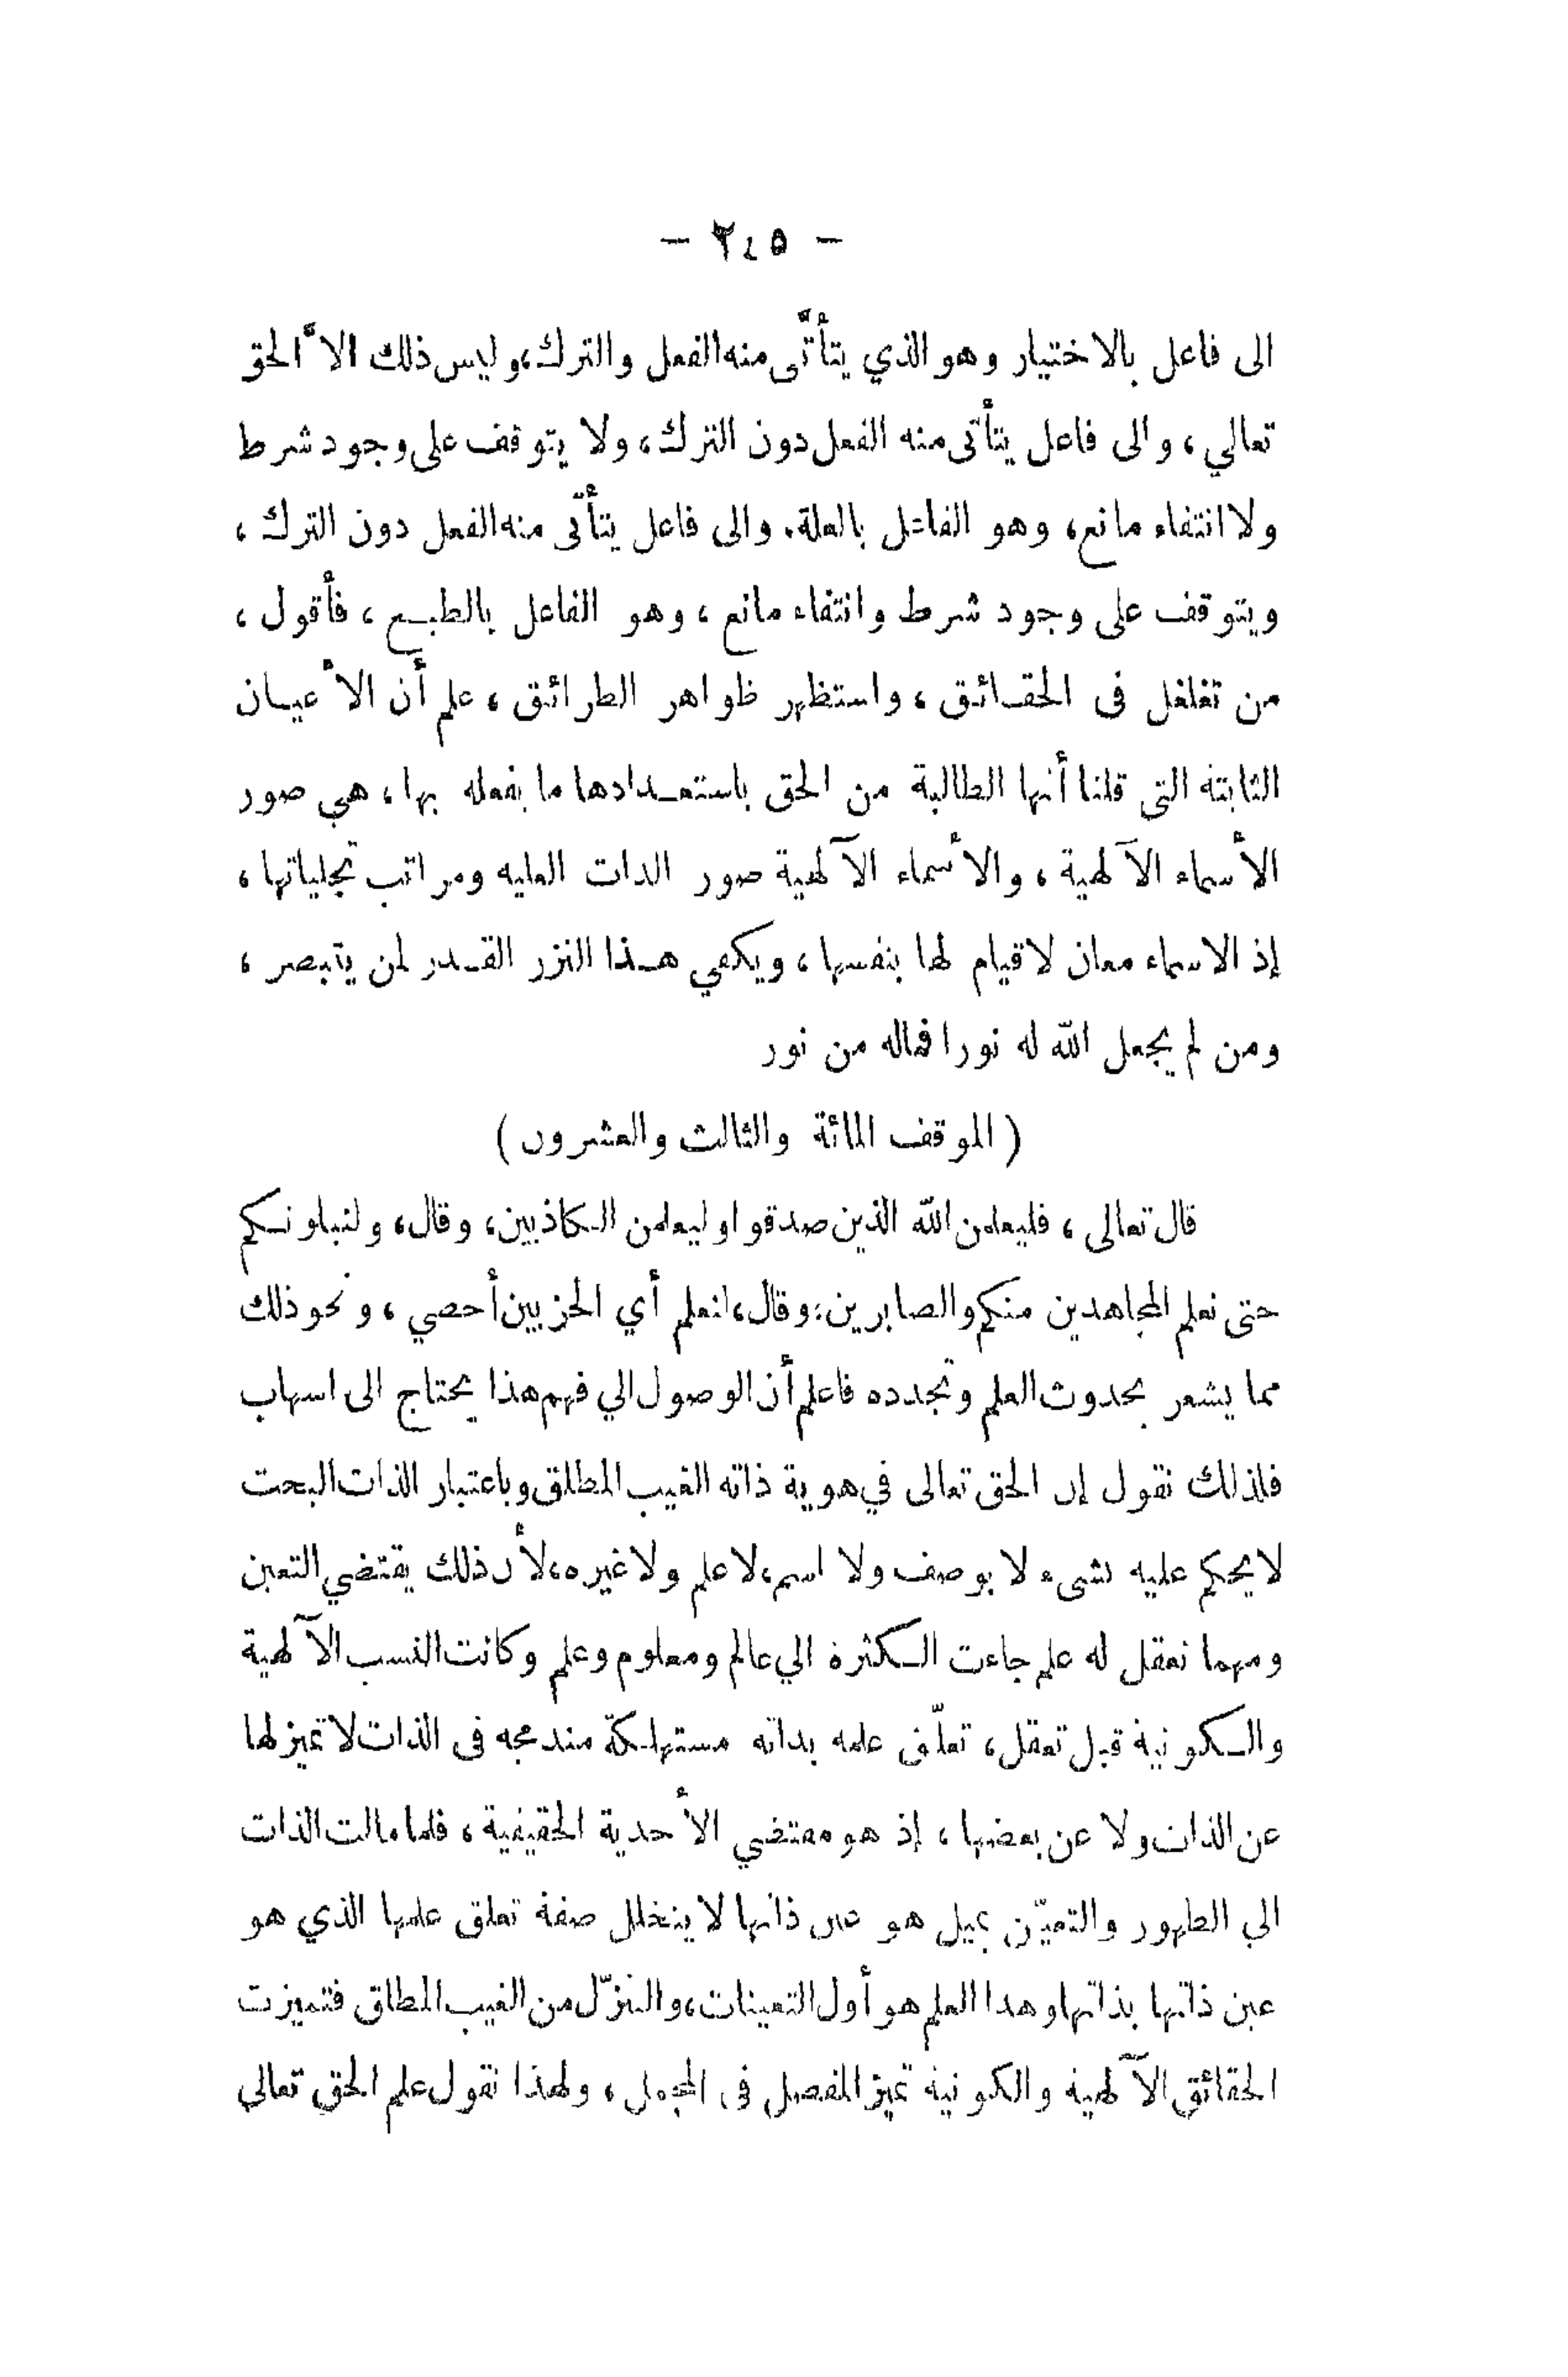 — ٢٤٥ —
الى فاعل بالاختيار وهو الذي يتأتّى منه الفعل والترك، وليس ذلك الاّ الحق
تعالي ، والى فاعل يتأتى منه الفعل دون الترك ، ولا يتوقف على وجود شرط
ولا انتفاء مانع، وهو الفاعل بالعلة. والى فاعل يتأتّى منه الفعل دون الترك ،
ويتوقف على وجود شرط وانتفاء مانع ، وهو الفاعل بالطبع ، فأقول ،
من تغلغل فى الحقائق ، واستظهر ظواهر الطرائق ، علم أن الأعيان
الثابتة التى قلنا أنها الطالبة من الحق باستعدادها ما يفعله بها ، هي صور
الأسماء الآلهية ، والأسماء الآلهية صور الدات العليه ومراتب تجلياتها ،
إذ الاسماء معان لاقيام لها بنفسها ، ويكفي هذا النزر القدر لمن يتبصر ،
ومن لم يجعل الله له نورا فماله من نور
( الموقف المائة والثالث والعشرون )
قال تعالى ، فليعلمن الله الذين صدقوا وليعلمن الكاذبين، وقال، ولنبلونكم
حتى نعلم المجاهدين منكم والصابرين: وقال، لنعلم أي الحزبين أحصي ، ونحو ذلك
مما يشعر بحدوث العلم وتجدده فاعلم أن الوصول الي فهم هذا يحتاج الى اسهاب
فلذلك نقول إن الحق تعالى في هوية ذاته الغيب المطلق وباعتبار الذات البحت
لا يحكم عليه بشىء لا بوصف ولا اسم، لا علم ولا غيره، لأن ذلك يقتضي التعين
ومهما نعقل له علم جاءت الكثرة الي عالم ومعلوم وعلم وكانت النسب الآلهية
والكونية قبل تعقل، تعلّق علمه بداته مستهلكة مندمجه فى الذات لا تميز لها
عن الذات ولا عن بعضها ، إذ هو مقتضي الأحدية الحقيقية ، فلما مالت الذات
الي الظهور والتعيّن بميل هو عين ذاتها لا يتخلل صفة تعلق علمها الذي هو
عين ذاتها بذاتها وهدا العلم هو أول التعينات، والتنزّل من الغيب المطلق فتميزت
الحقائق الآلهية والكونية تميز المفصل فى المجمل ، ولهذا نقول علم الحق تعالي